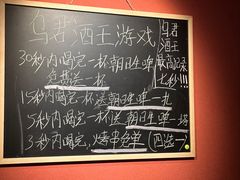 乌君酒王游戏
30秒内喝完一杯朝日生啤
免费送一杯
15秒内喝完一杯送朝日生啤一扎
5秒内喝完一杯送朝日生啤一塔
3秒内喝完，烤串免单（四选一）
乌君
酒王
最高记录
七秒!!!